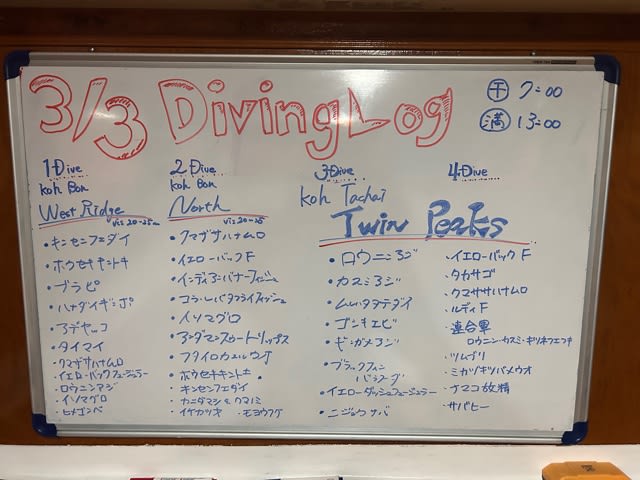 3/3 Diving Log
干 7:00
満 13:00
1.Dive
Koh Bon
West Ridge
vis 20-25m
・キンセンフエダイ
・ホウセキキントキ
・ブラピ
・ハナダイギンポ
・アデヤッコ
・タイマイ
・クマザサハナムロ
・イエローバックフュージュラー
・ロウニンアジ
・イソマグロ
・ヒメゴンベ
2.Dive
Koh Bon
North
vis 20-25
・クマザサハナムロ
・イエローバックF
・インディアンバナーフィッシュ
・コラーレバタフライフィッシュ
・イソマグロ
・アンダマンスイートリップス
・ホウセキキントキ
・キンセンフエダイ
・カニダマシ&クマノミ
・イケカツオ ・モヨウフグ
3.Dive
Koh Tachai
Twin Peaks
・ロウニンアジ
・カスミアジ
・ムレハタタテダイ
・ゴシキエビ
・ギンガメアジ
・ブラックフィン
バラクーダ
・イエローダッシュフュージュラー
・ニジョウサバ
4.Dive
・イエローバックF
・タカサゴ
・クマササハナムロ
・ルディF
・連合軍
ロウニン・カスミ・ギリネフエフキ
・ツムブリ
・ミカヅキツバメウオ
・ナマコ放精
・サバヒー